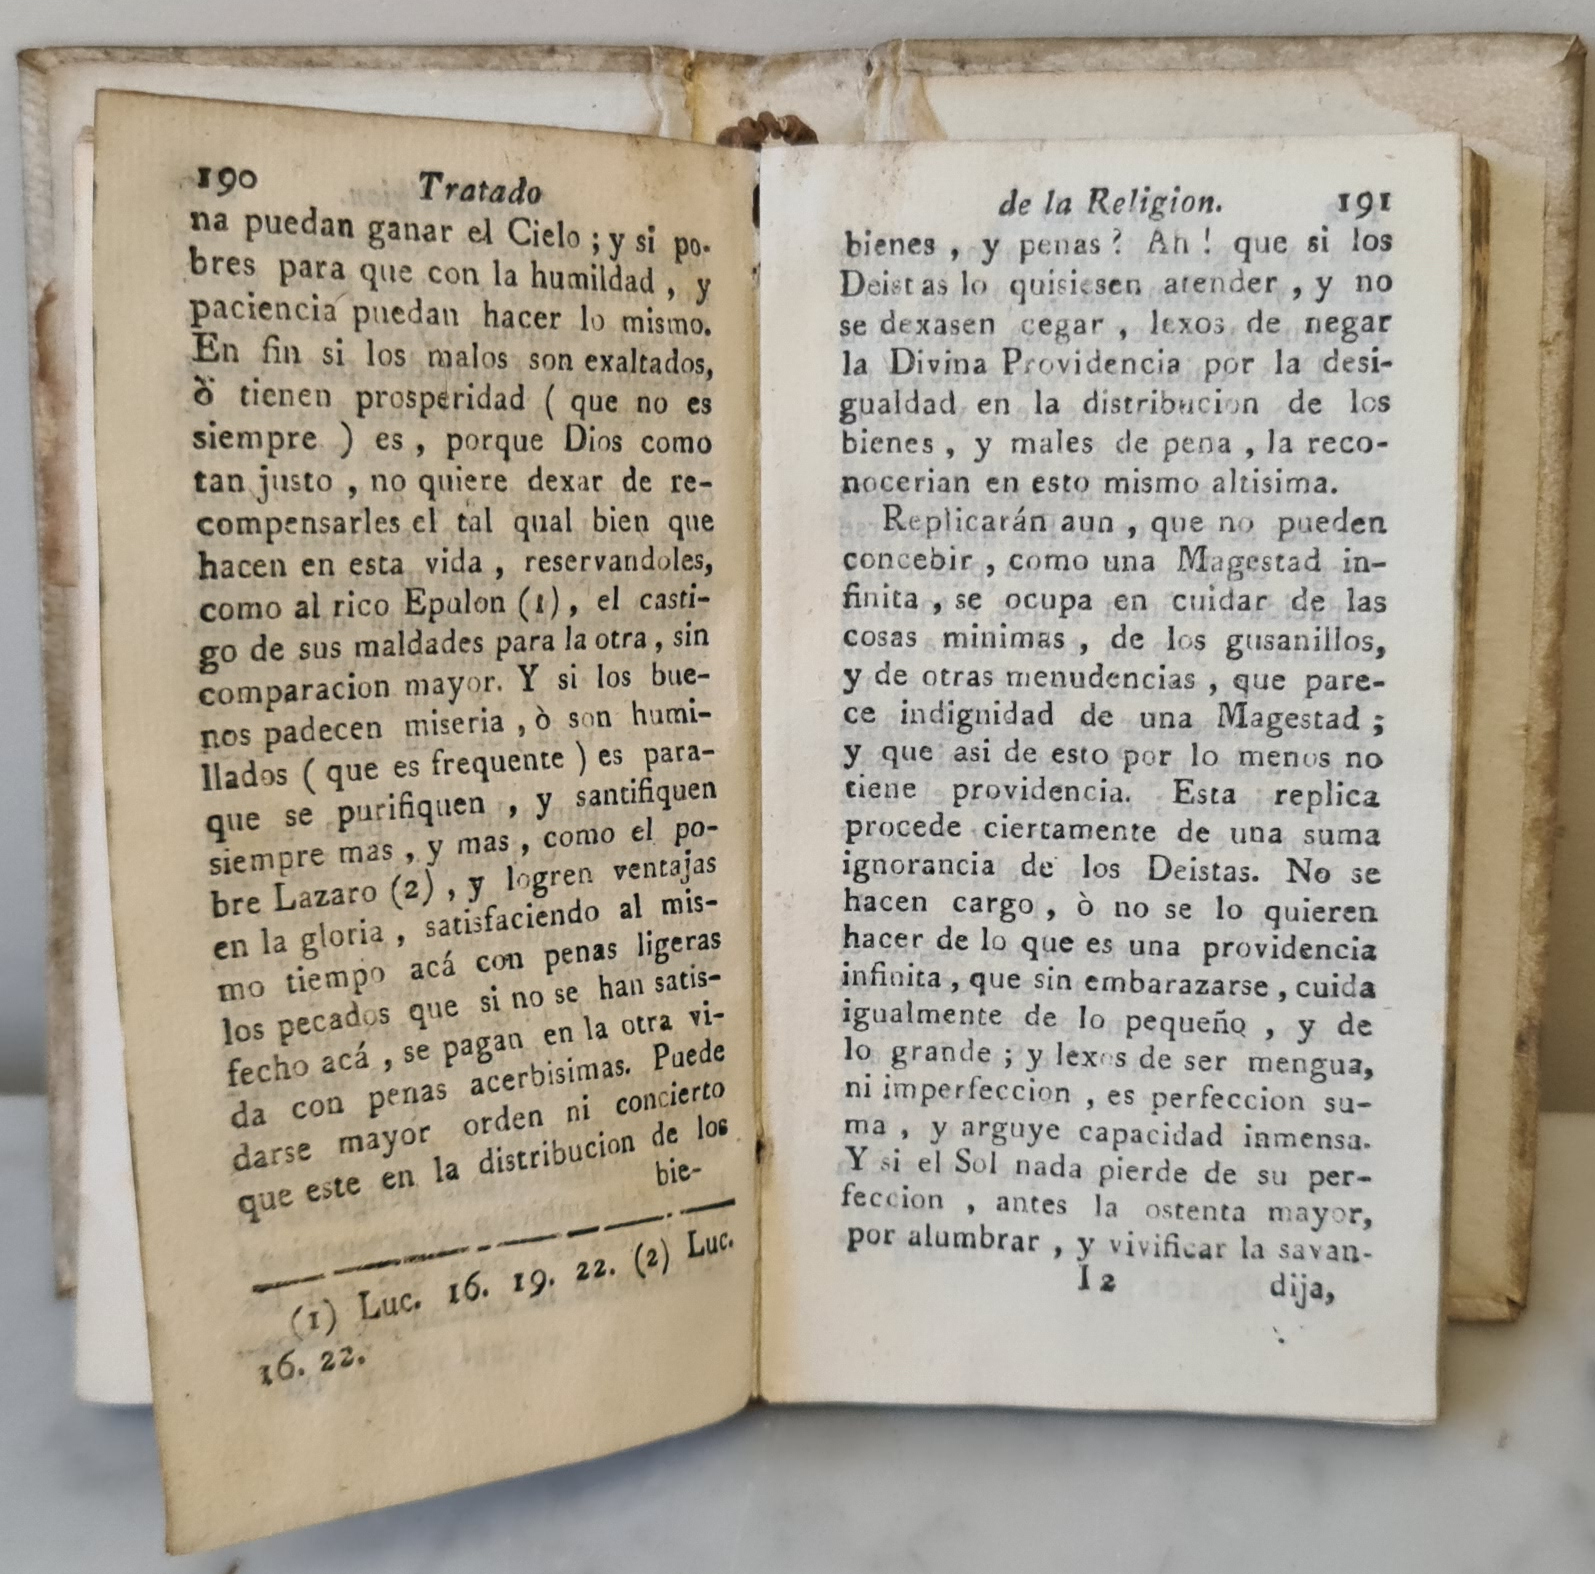 190 Tratado
na puedan ganar el Cielo ; y si po-
bres para que con la humildad , y
paciencia puedan hacer lo mismo.
En fin si los malos son exaltados,
ò tienen prosperidad ( que no es
siempre ) es , porque Dios como
tan justo , no quiere dexar de re-
compensarles el tal qual bien que
hacen en esta vida , reservandoles,
como al rico Epulon (1) , el casti-
go de sus maldades para la otra , sin
comparacion mayor. Y si los bue-
nos padecen miseria , ò son humi-
llados ( que es frequente ) es para-
que se purifiquen , y santifiquen
siempre mas , y mas , como el po-
bre Lazaro (2) , y logren ventajas
en la gloria , satisfaciendo al mis-
mo tiempo acá con penas ligeras
los pecados que si no se han satis-
fecho acá , se pagan en la otra vi-
da con penas acerbisimas. Puede
darse mayor orden ni concierto
que este en la distribucion de los
bie-
(1) Luc. 16. 19. 22. (2) Luc.
16. 22.
de la Religion. 191
bienes , y penas ? Ah ! que si los
Deistas lo quisiesen atender , y no
se dexasen cegar , lexos de negar
la Divina Providencia por la desi-
gualdad en la distribucion de los
bienes , y males de pena , la reco-
nocerian en esto mismo altisima.
Replicarán aun , que no pueden
concebir , como una Magestad in-
finita , se ocupa en cuidar de las
cosas minimas , de los gusanillos,
y de otras menudencias , que pare-
ce indignidad de una Magestad ;
y que asi de esto por lo menos no
tiene providencia. Esta replica
procede ciertamente de una suma
ignorancia de los Deistas. No se
hacen cargo , ò no se lo quieren
hacer de lo que es una providencia
infinita , que sin embarazarse , cuida
igualmente de lo pequeño , y de
lo grande ; y lexos de ser mengua,
ni imperfeccion , es perfeccion su-
ma , y arguye capacidad inmensa.
Y si el Sol nada pierde de su per-
feccion , antes la ostenta mayor,
por alumbrar , y vivificar la savan-
I 2 dija,